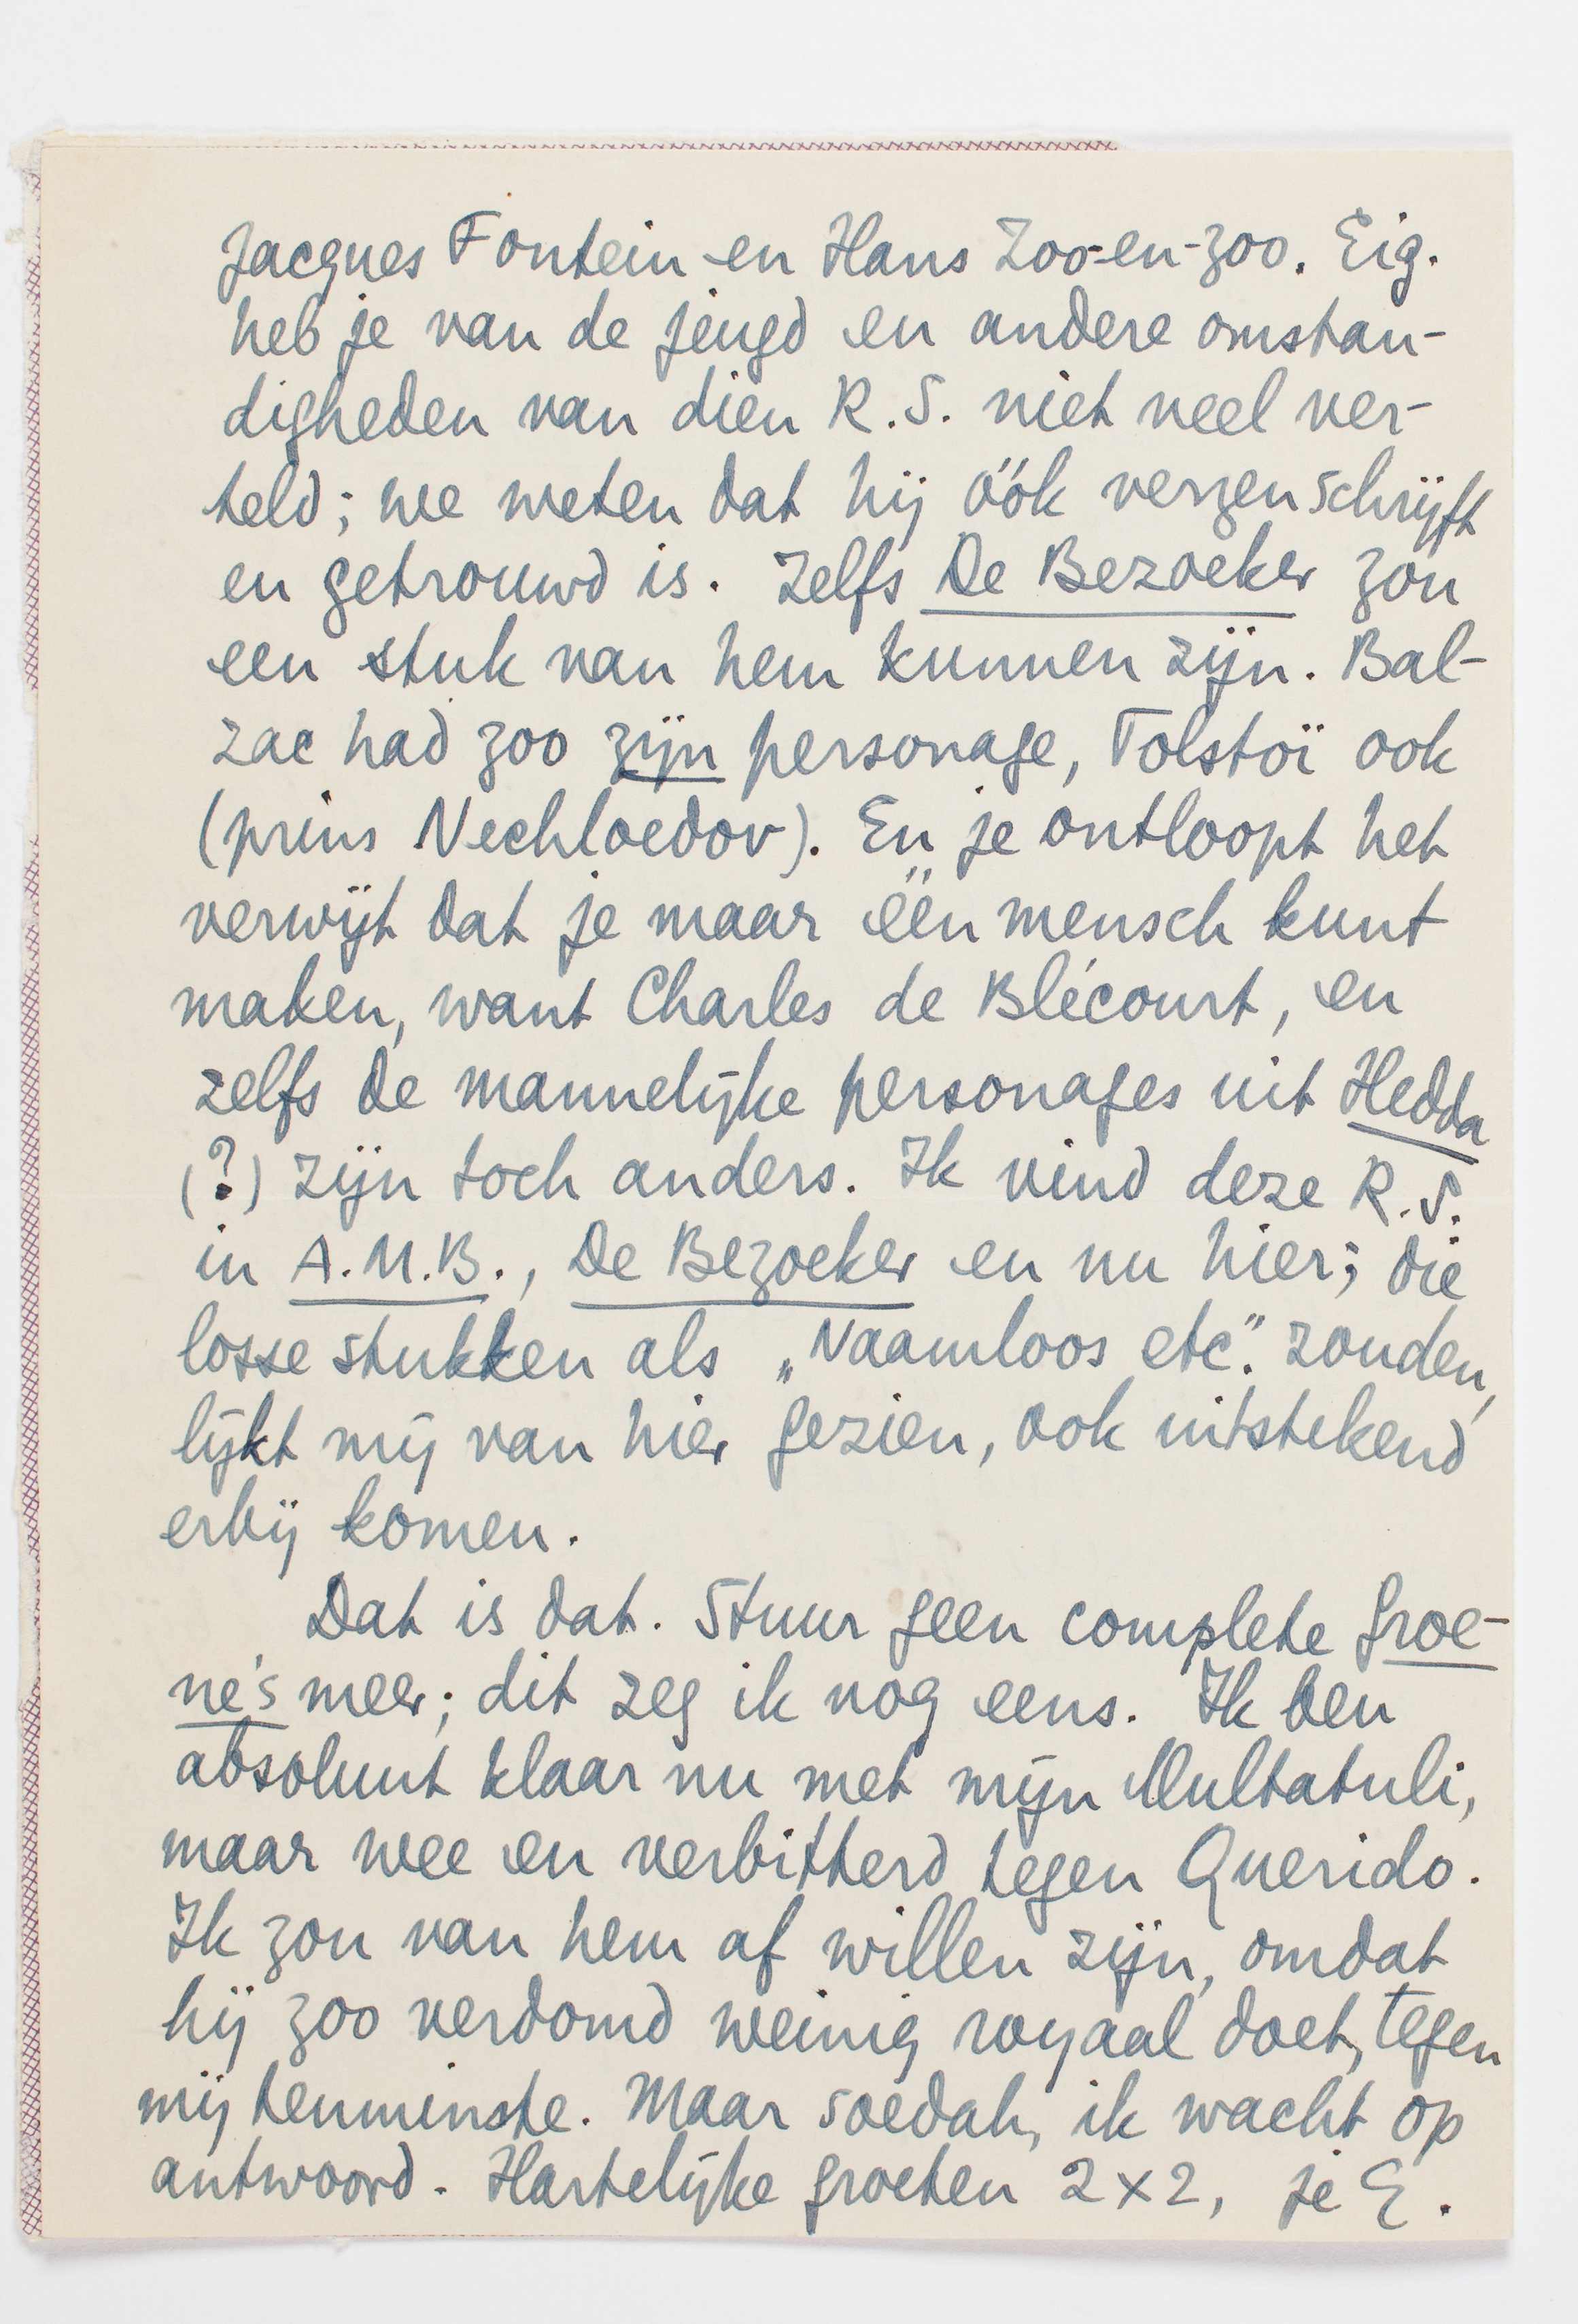 Jacques Fontein en Hans Zoo-en-zoo. Eig.
heb je van de jeugd en andere omstan-
digheden van dien R.S. niet veel ver-
teld; we weten dat hij óók verzen schrijft
en getrouwd is. Zelfs De Bezoeker zou
een stuk van hem kunnen zijn. Bal-
zac had zoo zijn personage, Tolstoï ook
(prins Nechloedov). En je ontloopt het
verwijt dat je maar één mensch kunt
maken, want Charles de Blécourt, en
zelfs de mannelijke personages uit Hedda
(?) zijn toch anders. Ik vind deze R.S.
in A.M.B., De Bezoeker en nu hier; die
losse stukken als „Naamloos etc." zouden,
lijkt mij van hier gezien, ook uitstekend
erbij komen.
Dat is dat. Stuur geen complete Groe-
ne's meer; dit zeg ik nog eens. Ik ben
absoluut klaar nu met mijn Multatuli,
maar wee en verbitterd tegen Querido.
Ik zou van hem af willen zijn, omdat
hij zoo verdomd weinig royaal doet, tegen
mij tenminste. Maar soedah, ik wacht op
antwoord. Hartelijke groeten 2 x 2, je E.